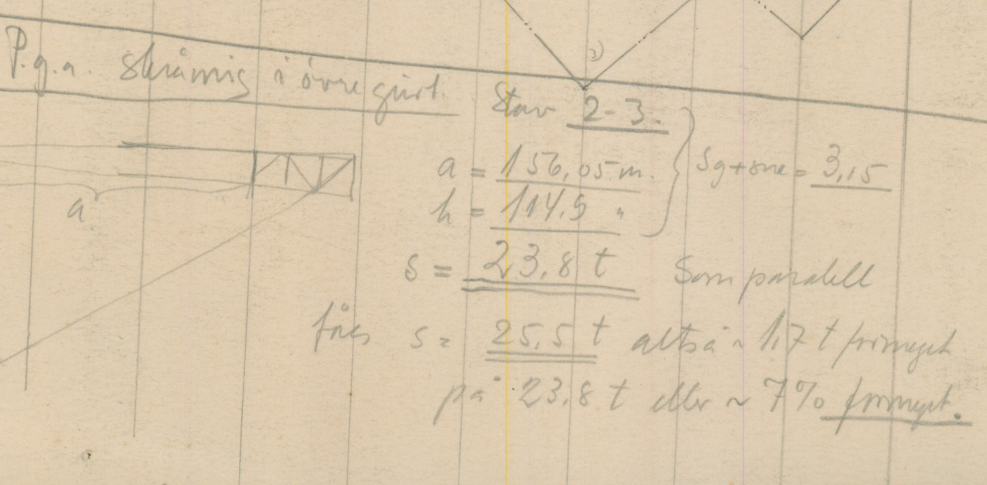 2)
P.g.a. skråning i övre gurt. Stav 2-3.
a = 156,05 m.
h = 114,9 " Sg+sne = 3,15
a
s = 23,8 t Som paralell
fåes s = 25,5 t altså ~ 1,7 t formeget
på 23,8 t eller ~ 7% formeget.